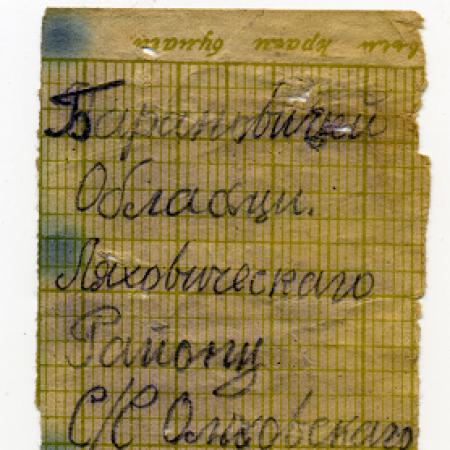 выш краги бумаги
Барановичкей
Области.
Ляховическаго
Району
С/С Ольховскаго